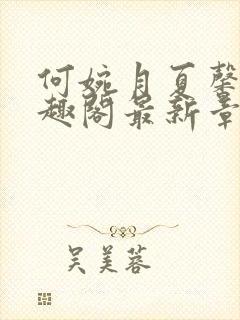 何婉月夏馨
趣阁最新章
吴美蓉